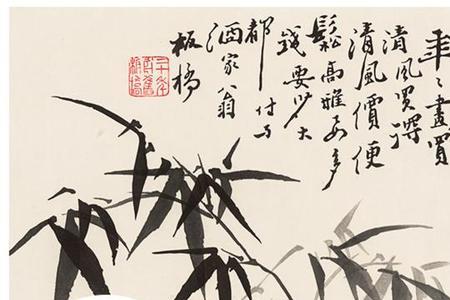 年〻畫買
清風買得
清風價便
鬆高雅要多
錢要少大
都付与
酒家翁
板橋